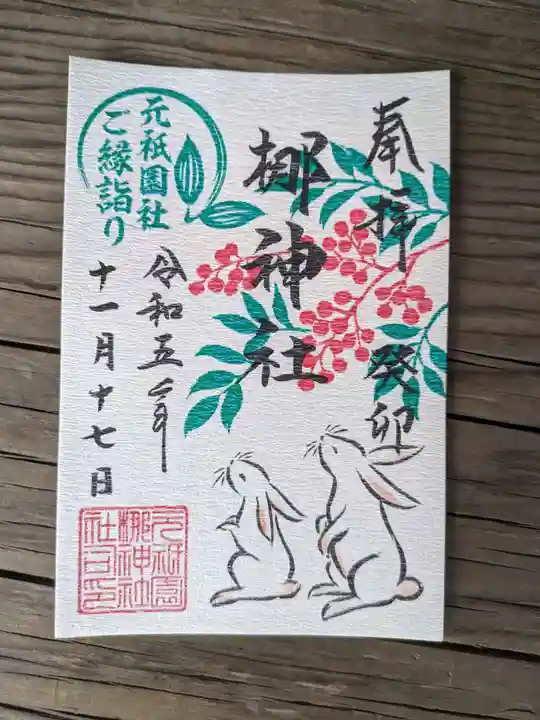 奉拝
癸卯
梛神社
元祇園社
ご縁詣り
令和五年
十一月十七日
元祇園
梛神社
社之印